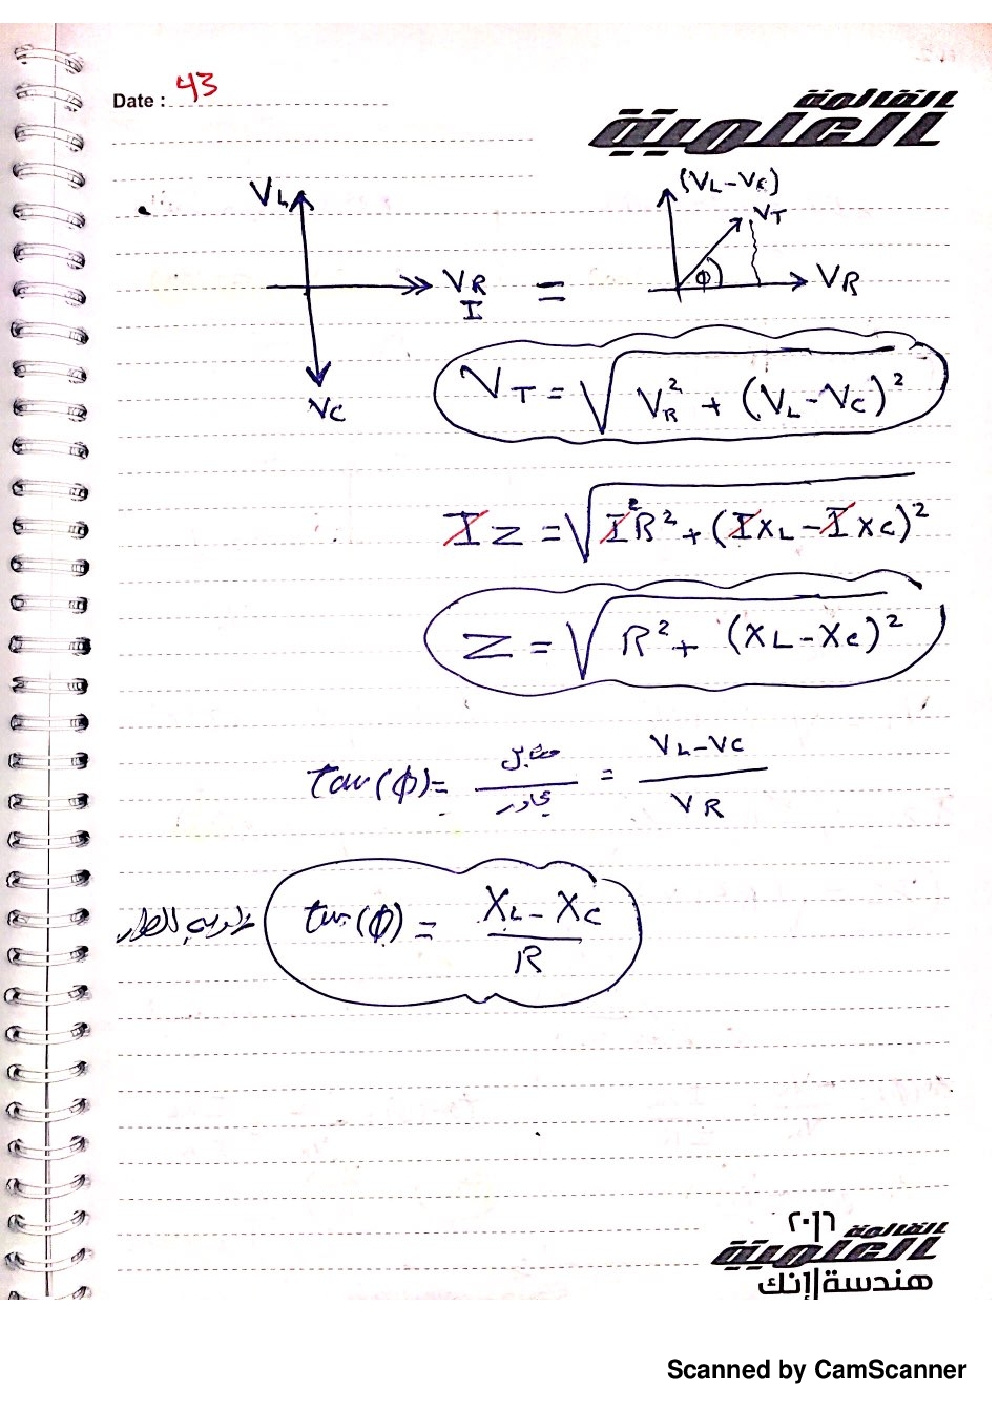 Date : 43
القائمة
العلمية
VL
(VL-VC)
VT
ϕ
VR
I
=
VR
VC
VT = √VR² + (VL-VC)²
I Z = √I²R² + (IXL - IXC)²
Z = √R² + (XL-XC)²
tan(ϕ) = مقابل / مجاور = VL-VC / VR
tan(ϕ) = XL - XC / R
٢٠١٦
القائمة
العلمية
هندسة إربك
Scanned by CamScanner